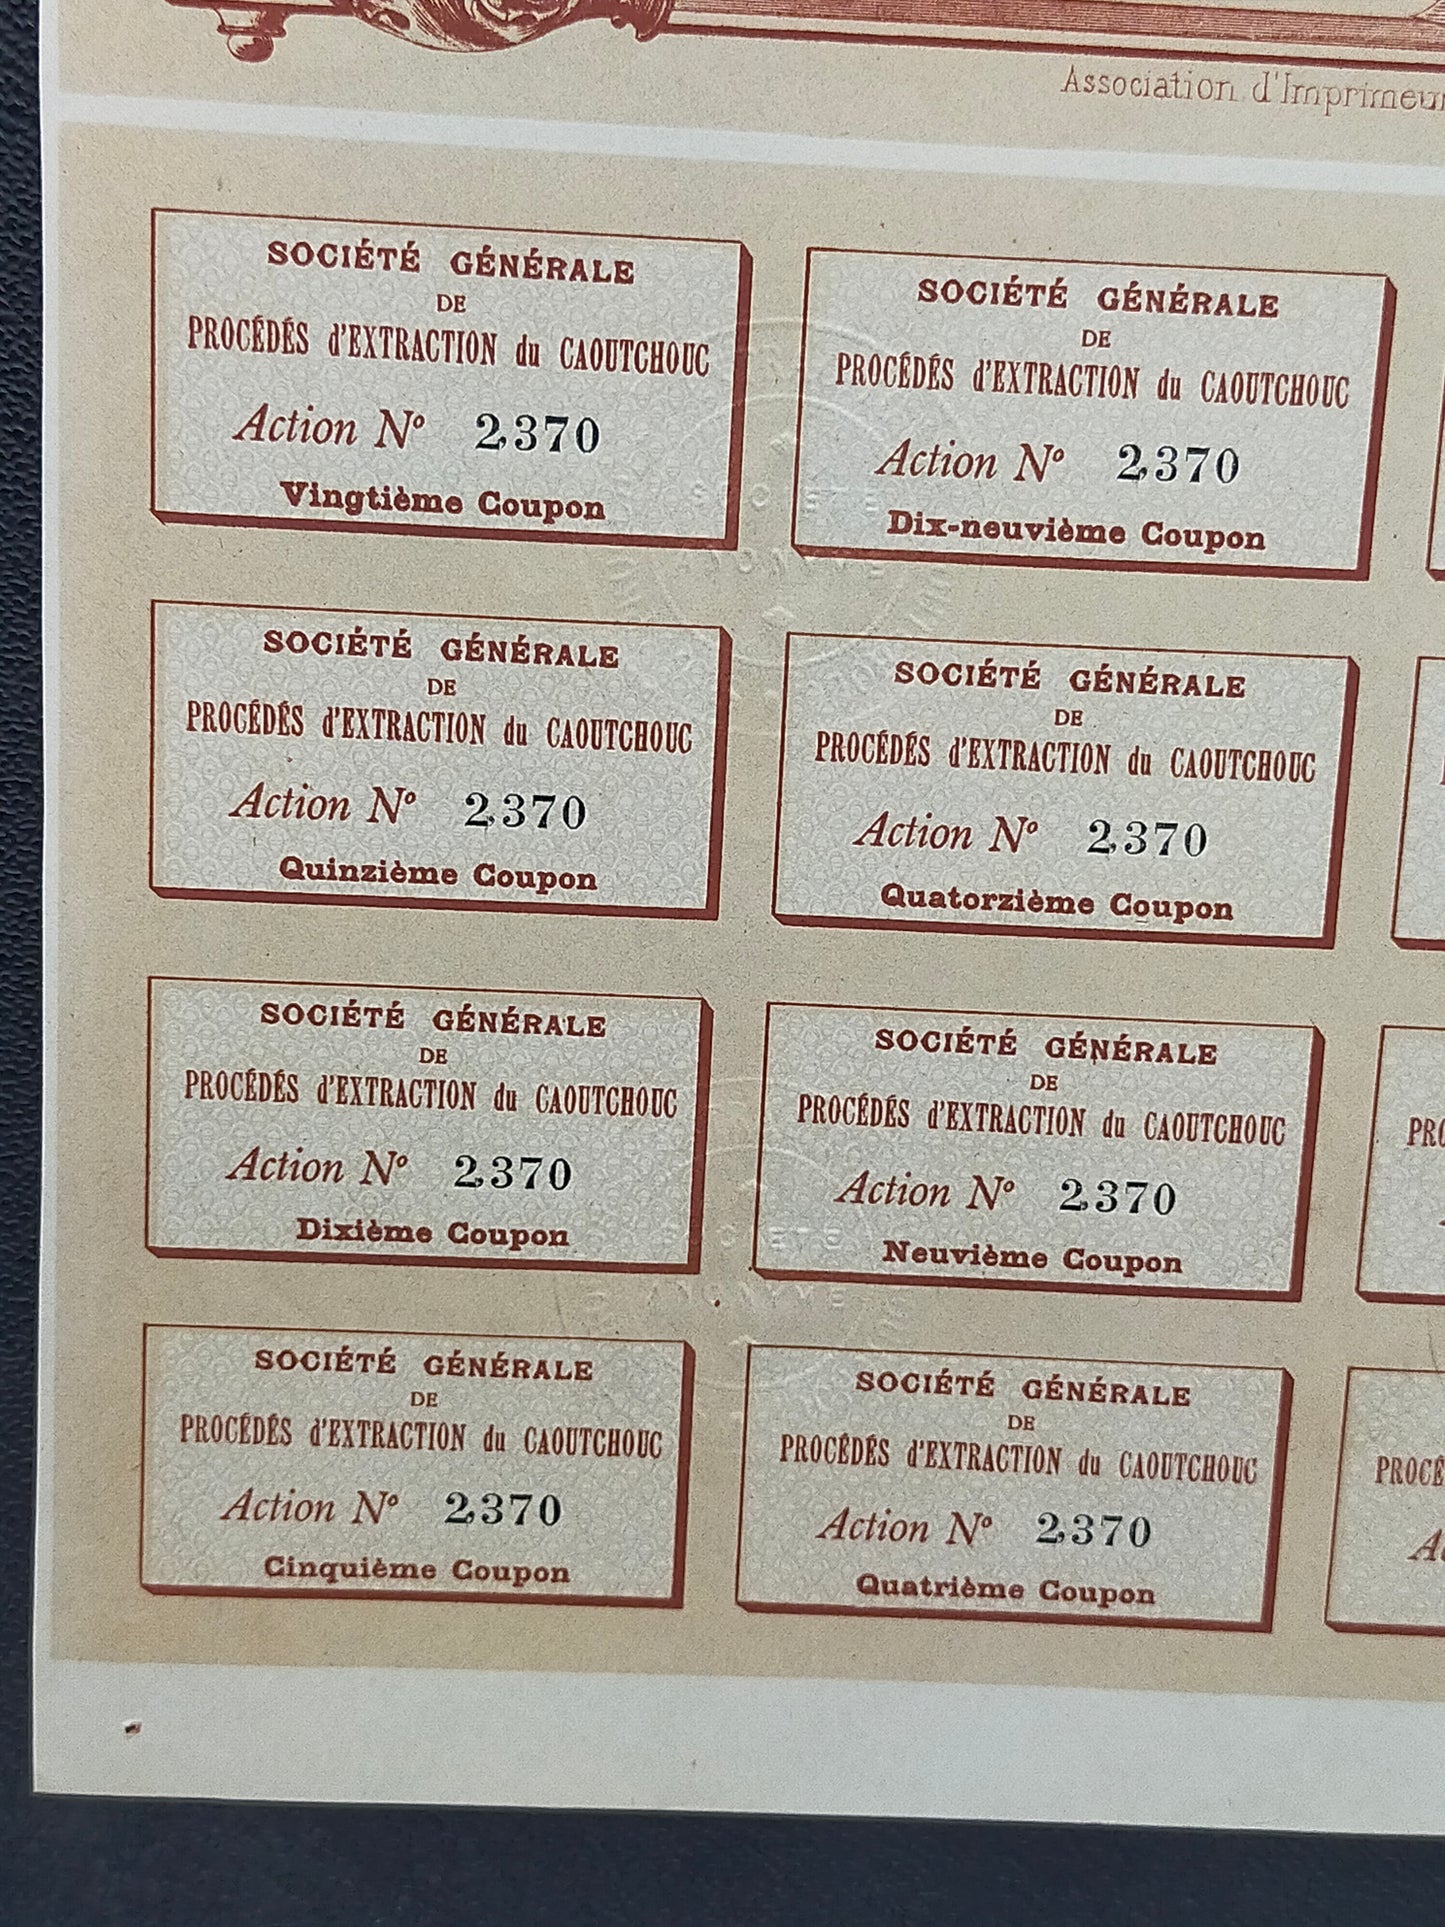 Association d'Imprimeu
SOCIÉTÉ GÉNÉRALE
DE
PROCÉDÉS d'EXTRACTION du CAOUTCHOUC
Action Nº 2,370
Vingtième Coupon
SOCIÉTÉ GÉNÉRALE
DE
PROCÉDÉS d'EXTRACTION du CAOUTCHOUC
Action Nº 2,370
Dix-neuvième Coupon
SOCIÉTÉ GÉNÉRALE
DE
PROCÉDÉS d'EXTRACTION du CAOUTCHOUC
Action Nº 2,370
Quinzième Coupon
SOCIÉTÉ GÉNÉRALE
DE
PROCÉDÉS d'EXTRACTION du CAOUTCHOUC
Action Nº 2,370
Quatorzième Coupon
SOCIÉTÉ GÉNÉRALE
DE
PROCÉDÉS d'EXTRACTION du CAOUTCHOUC
Action Nº 2,370
Dixième Coupon
SOCIÉTÉ GÉNÉRALE
DE
PROCÉDÉS d'EXTRACTION du CAOUTCHOUC
Action Nº 2,370
Neuvième Coupon
PRO
SOCIÉTÉ GÉNÉRALE
DE
PROCÉDÉS d'EXTRACTION du CAOUTCHOUC
Action Nº 2,370
Cinquième Coupon
SOCIÉTÉ GÉNÉRALE
DE
PROCÉDÉS d'EXTRACTION du CAOUTCHOUC
Action Nº 2,370
Quatrième Coupon
PROCÉ